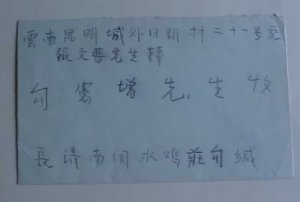 雲南昆明城外日新村二十一号交
文普先生轉
句雲增先生收
長清南関水鳴莊句缄